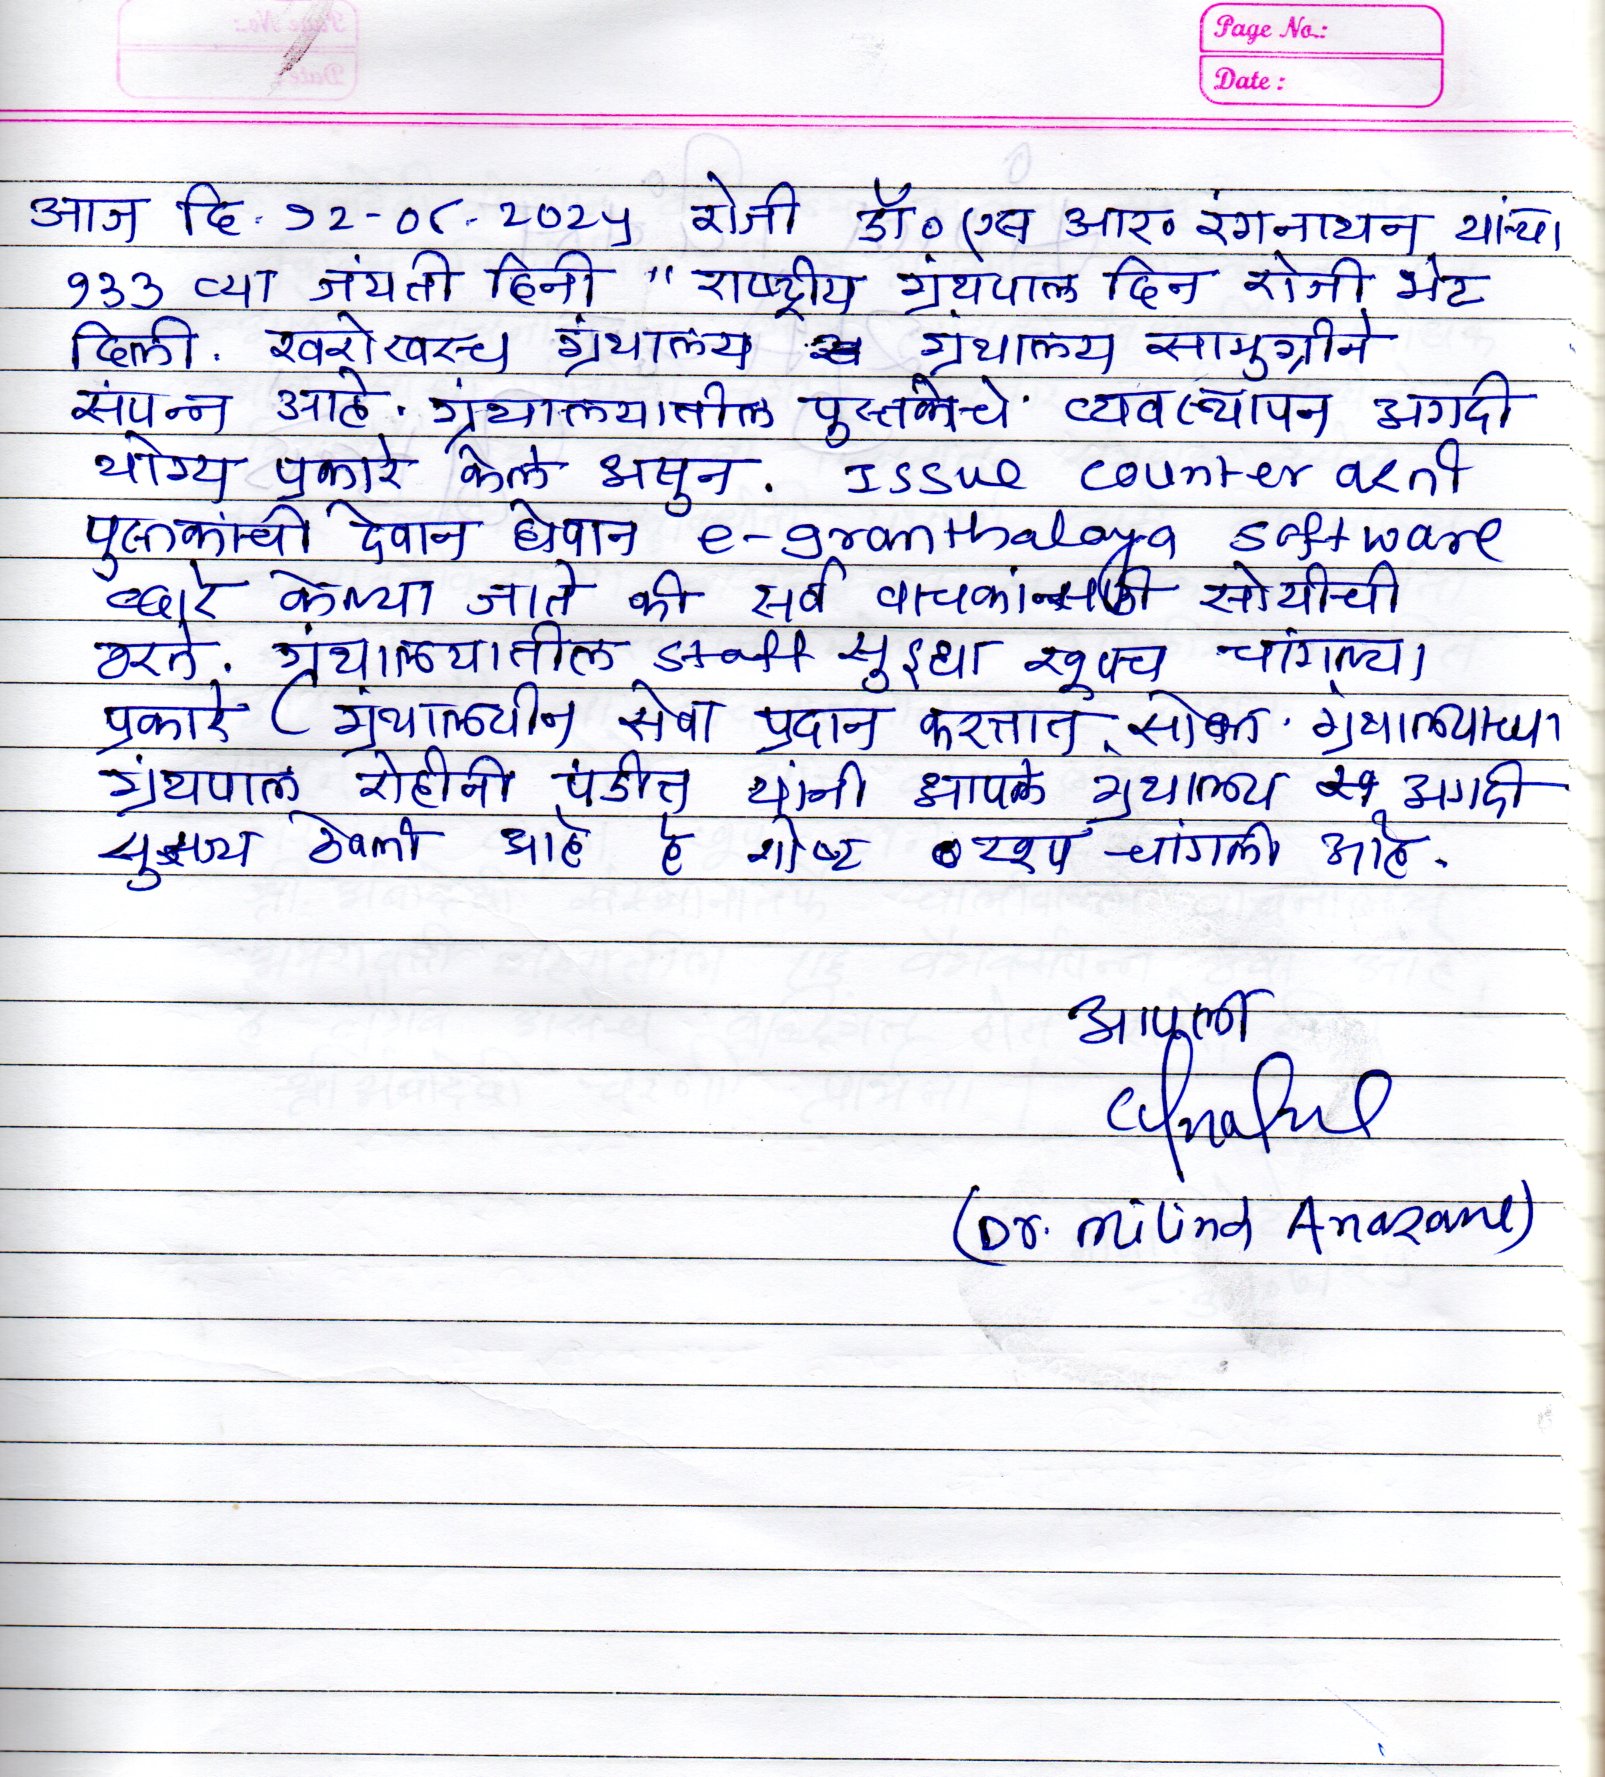 Page No.:
Date :
आज दि. १२-०८-२०२५ रोजी डॉ० एस आर० रंगनाथन यांच्या
१३३ व्या जंयती दिनी " राष्ट्रीय ग्रंथपाल दिन रोजी भेट
दिली. खरोखरच ग्रंथालय ग्रंथालय सामुग्रीने
संपन्न आहे. ग्रंथालयातील पुस्तकांचे व्यवस्थापन अगदी
योग्य प्रकारे केले असुन. Issue counter वरती
पुस्तकांची देवान घेवान e-granthalaya software
व्दारे केल्या जाते की सर्व वाचकांन्साठी सोयीची
ठरते. ग्रंथालयातील staff सुद्धा खुपच चांगल्या
प्रकारे ग्रंथालयीन सेवा प्रदान करतात. ग्रंथालयाच्या
ग्रंथपाल रोहीनी पंडीत यांनी आपले ग्रंथालय अगदी
सुसज्य ठेवली आहे हे गोष्ट खुप चांगली आहे.
आपली
(Dr. Milind Anasane)